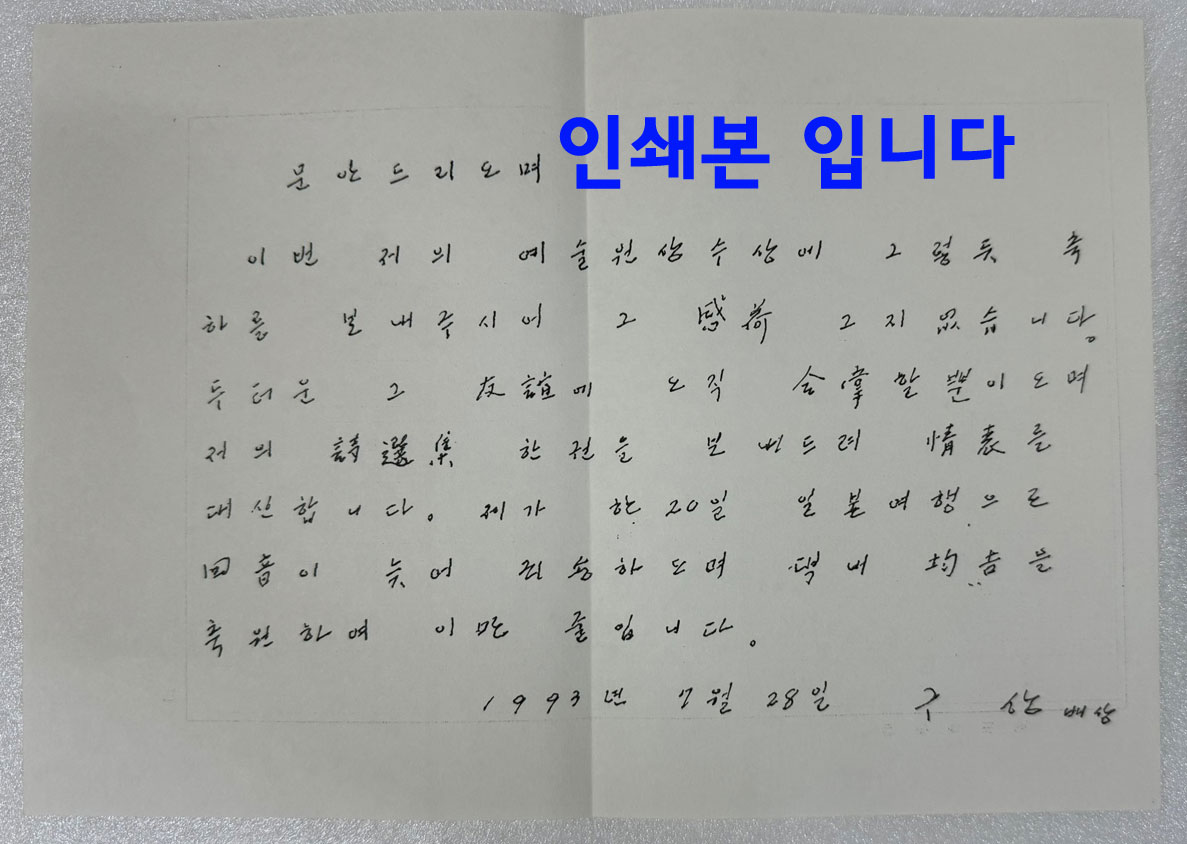 인쇄본 입니다
문안드리오며
이번 저의 예술원상수상에 그렇듯 축
하를 보내주시어 그 感荷 그지 없습니다.
두터운 그 友誼에 오직 합장할뿐이오며
저의 詩選集 한권을 보내드려 情表를
대신합니다. 제가 한 20일 일본여행으로
回音이 늦어 죄송하오며 댁내 均吉을
축원하여 이만 줄입니다.
1993년 7월 28일 구 상 배상